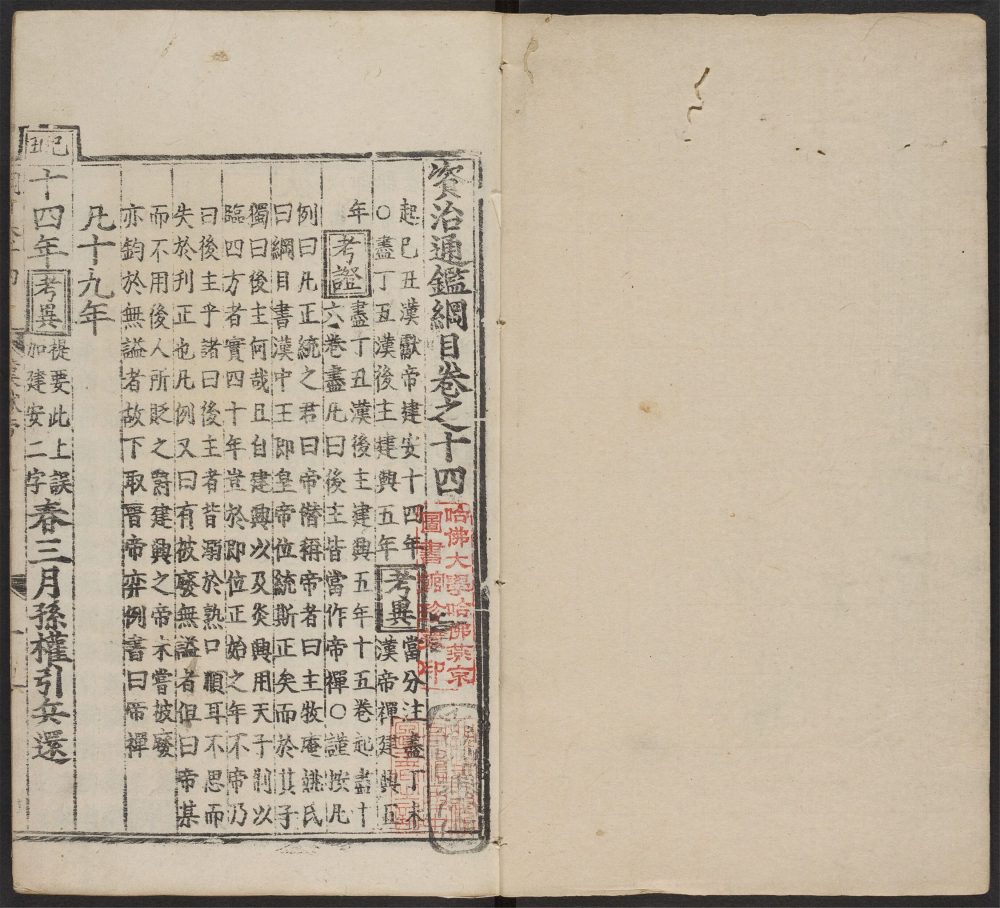 資治通鑑綱目卷之十四
哈佛大學哈佛燕京
圖書館珍藏印
起己丑漢獻帝建安十四年
考異
當分注盡丁未
○盡丁亙漢後主建興五年
漢帝禪建興五
年
考證
盡丁丑漢後主建興五年十五卷起盡十
六卷盡凡曰後主皆當作帝禪○謹按凡
例曰凡正統之君曰帝僭稱帝者曰主牧庵姚氏
曰綱目書漢中王即皇帝位統斯正矣而於其子
獨曰後主何哉且自建興以及炎興用天子制以
臨四方者實四十年豈於即位正始之年不帝乃
曰後主乎諸曰後主者昔溺於熟口順耳不思而
失於刊正也凡例又曰有被廢無謚者但曰帝某
而不用後人所貶之爵建興之帝未嘗被廢
亦鈞於無謚者故下取晉帝弈例書曰帝禪
凡十九年
己丑
十四年
考異
提要此上誤
加建安二字
春三月孫權引兵還